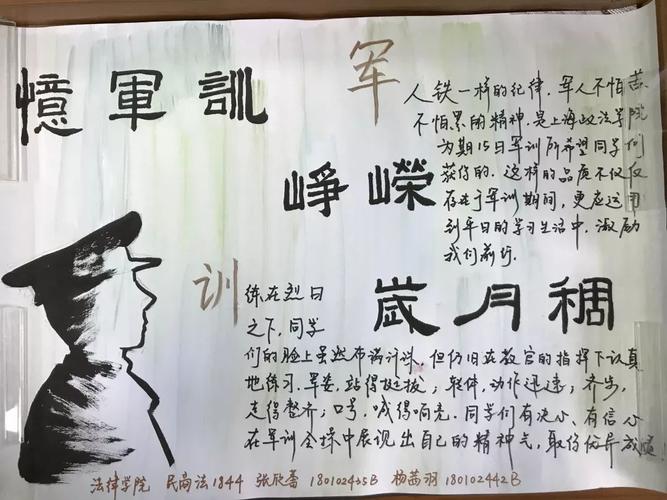 憶軍訓
崢嶸
歲月稠
军
人铁一样的纪律，军人不怕苦
不怕累的精神，是上海政法学院
为期15日军训所希望同学们
获得的。这样的品质不仅仅
存在于军训期间，更应运用
到平日的学习生活中，激励
我们前行。
训
练在烈日
之下，同学
们的脸上虽然布满汗珠，但仍旧在教官的指挥下认真
地练习。军姿，站得挺拔；转体，动作迅速；齐步，
走得整齐；口号，喊得响亮。同学们有决心、有信心
在军训会操中展现出自己的精神气，取得优异成绩！
法律学院 民商法1844 张欣蕾 180102435B 杨茜羽 180102442B